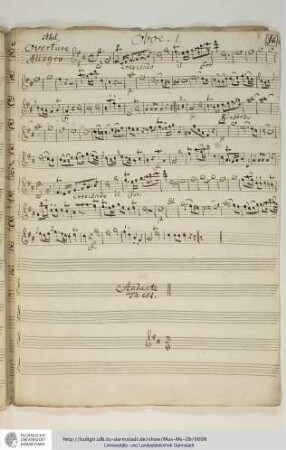 Abel.
Oboe. 1.
Overture
Allegro
Crescendo il for
Crescendo il for
Andante
Tacet.
TECHNISCHE
UNIVERSITÄT
DARMSTADT
http://tudigit.ulb.tu-darmstadt.de/show/Mus-Ms-2b/0008
Universitäts- und Landesbibliothek Darmstadt